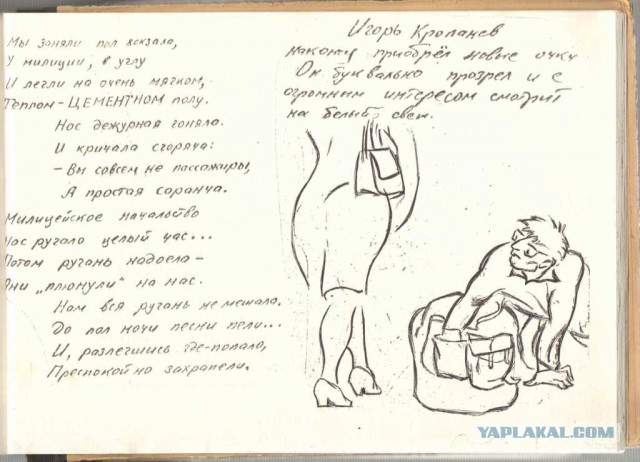 Мы заняли пол вокзала,
У милиции, в углу
И легли на очень мягком,
Теплом - ЦЕМЕНТНОМ полу.
Нас дежурная гоняла.
И кричала сгоряча:
- Вы совсем не пассажиры,
А простая саранча.
Милицейское начальство
Нас ругало целый час...
Потом ругань надоела -
Они „плюнули" на нас.
Нам вся ругань не мешала.
До пол ночи песни пели...
И, разлегшись где-попало,
Преспокойно захрапели.
Игорь Кропанев
наконец приобрёл новые очки
Он буквально прозрел и с
огромным интересом смотрит
на белый свет.
YAPLAKAL.COM